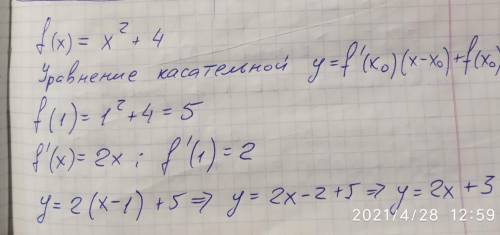 f(x) = x² + 4
Уравнение касательной y = f'(x₀)(x-x₀)+f(x₀)
f(1) = 1² + 4 = 5
f'(x) = 2x ; f'(1) = 2
y = 2(x-1) + 5 => y = 2x - 2 + 5 => y = 2x + 3
2021/4/28 12:59